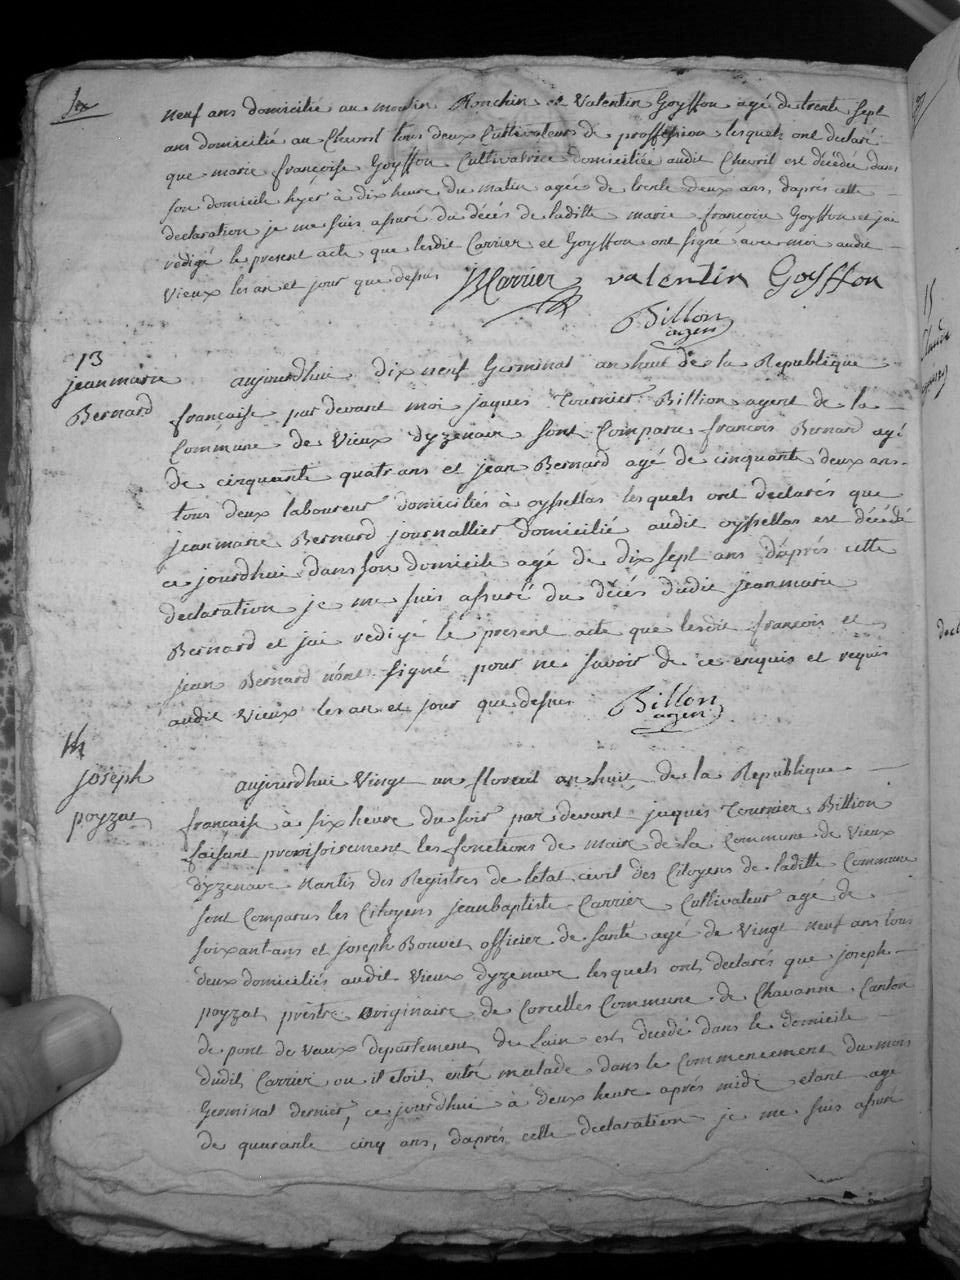 six
neuf ans domicilié au moulin Ronchin et Valentin Goyffon agé de trente sept
ans domicilié au Chevril tous deux Cultivateurs de proffesion lesquels ont declaré
que marie françoise Goyffon Cultivatrice domiciliée audit Chevril est décédée dans
son domicile hyer à dix heure du matin agée de trente deux ans, daprés cette
declaration je me suis assuré du décés de laditte marie françoise Goyffon et jai
redigé le present acte que lesdit Carrier et Goyffon ont signé avec moi audit
Vieux les an et jour que dessus JBCarrier valentin Goyffon
Billon
agen
13
jeanmarie
Bernard
aujourdhui dix neuf Germinal an huit de la Republique
française par devant moi jaques Tournier Billion agent de la
Commune de Vieux dyzenave sont Comparu françois Bernard agé
de cinquante quatr ans et jean Bernard agé de cinquante deux ans
tous deux laboureur domiciliés à oyssellas lesquels ont declarés que
jeanmarie Bernard journallier domicilié audit oyssellas est décédé
ce jourdhui dans son domicile agé de dix sept ans d'aprés cette
declaration je me suis assuré du décés dudit jeanmarie
Bernard et jai redigé le present acte que lesdit françois et
jean Bernard n'ont signé pour ne savoir de ce enquis et requis
audit Vieux les an et jour que dessus Billon
agen
14
joseph
poyzat
aujourdhui Vingt un floreal an huit de la Republique
francaise à six heure du soir par devant jaques Tournier Billion
faisant provisoirement les fonctions de maire de la Commune de Vieux
dyzenave Nantis des Registres de letat civil des Citoyens de laditte Commune
sont Comparus les Citoyens jeanbaptiste Carrier Cultivateur agé de
soixant ans et joseph Bouvet officier de santé agé de Vingt neuf ans tous
deux domiciliés audit Vieux dyzenave lesquels ont declarés que joseph
poyzat prêstre originaire de Corcelles Commune de Chavanne Canton
de pont de Vaux departement de Lain est decedé dans le domicile
dudit Carrier ou il etoit entré malade dans le Commencement du mois
Germinal dernier, ce jourdhui à deux heure aprés midi etant agé
de quarante cinq ans, daprés cette declaration je me suis assuré